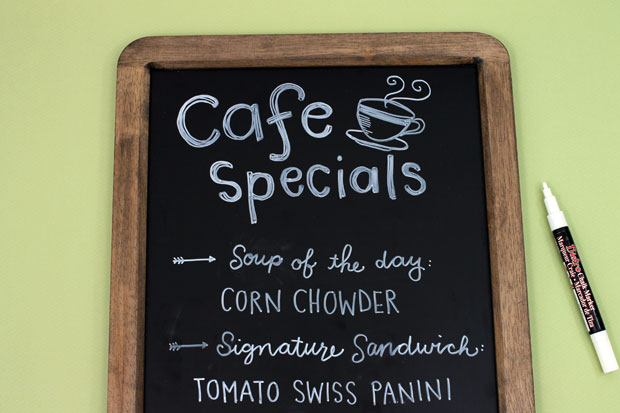 Cafe
Specials
Soup of the day:
CORN CHOWDER
Signature Sandwich:
TOMATO SWISS PANINI
Bistro Chalk Marker
Marqueur Craie
Marcador de Tiza